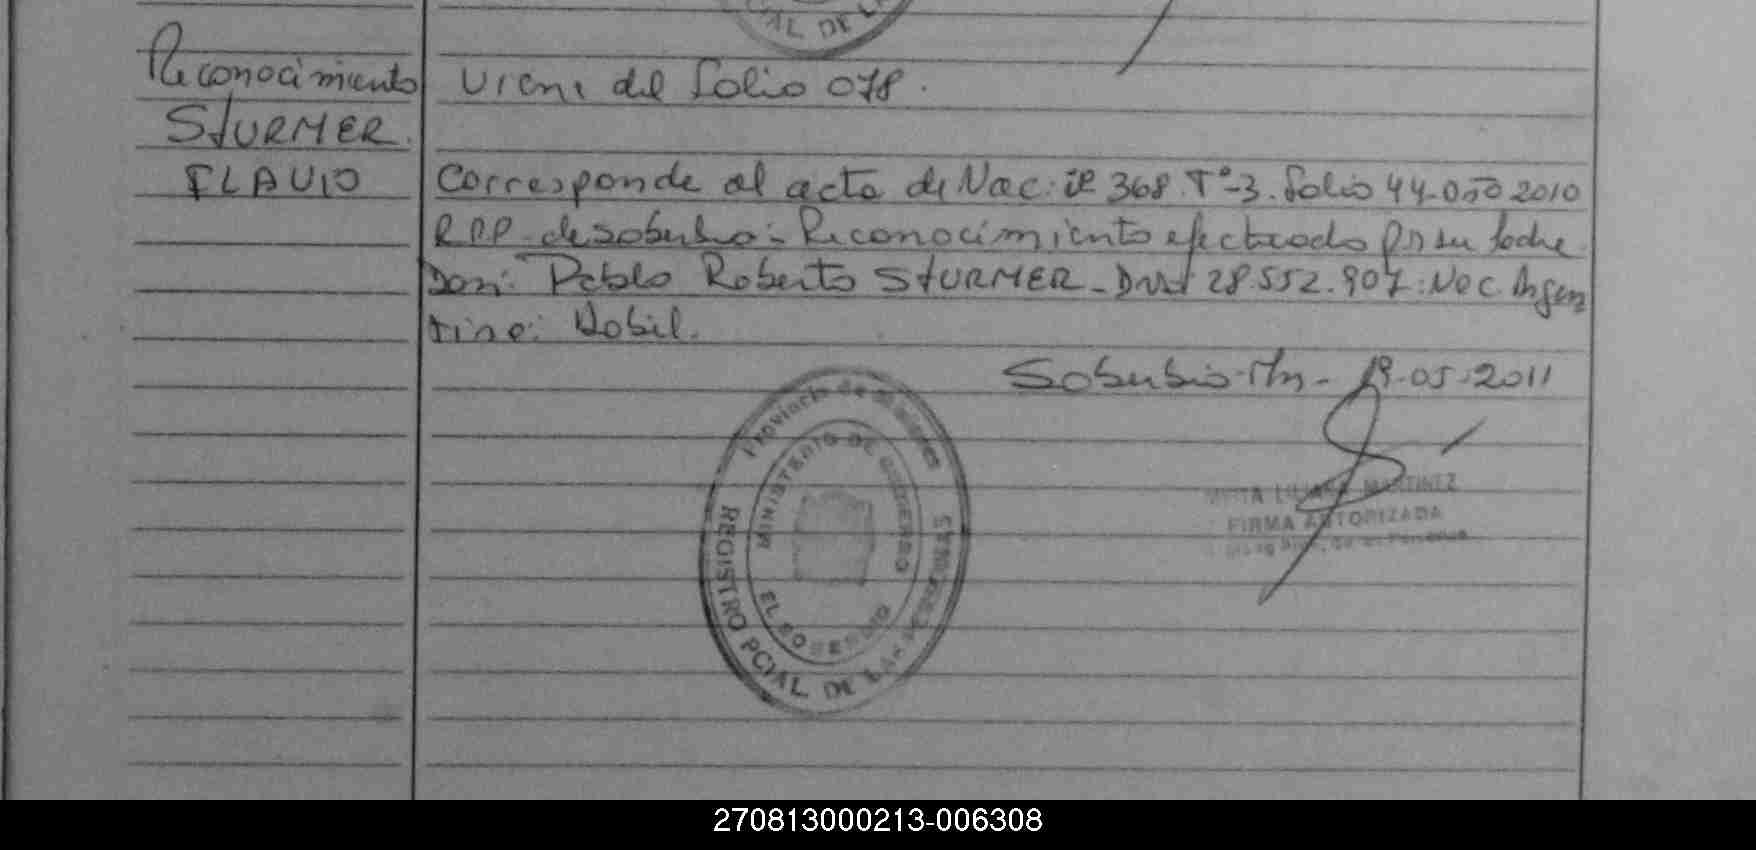 CIAL DE LA
Reconocimiento Viene del folio 078.
STURMER.
FLAVIO Corresponde al acta de Nac: nº 368. Tº-3. folio 44-año 2010
R.P.P. de soberbio- Reconocimiento efectuado por su padre
Don: Pablo Roberto STURMER- DNI 28.552.907: Nac. Argen
tina: Habil.
Soberbio-Mns- 19-05-2011
Provincia de Misiones
MINISTERIO DE GOBIERNO
EL SOBERBIO
REGISTRO PCIAL. DE LAS PERSONAS
MIRTA LILIANA MARTINEZ
FIRMA AUTORIZADA
270813000213-006308